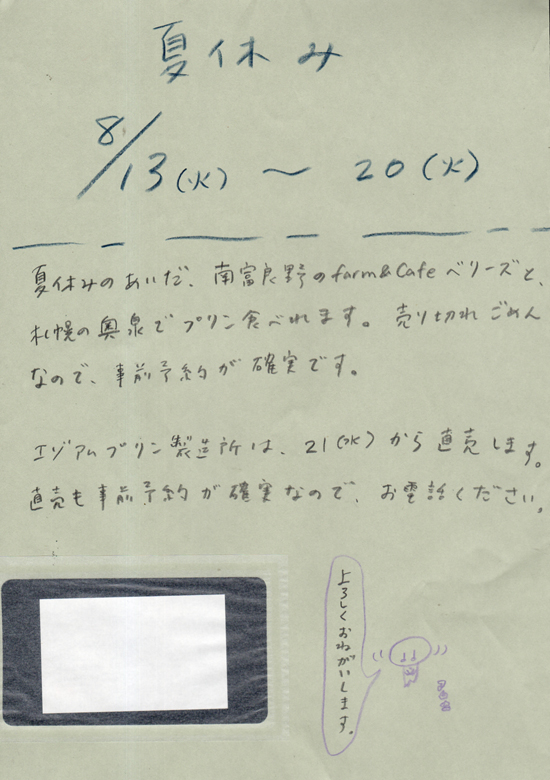 夏休み
8/13(火) ～ 20(火)
夏休みのあいだ、南富良野のfarm&Cafeベリーズと、
札幌の奥泉でプリン食べれます。売り切れごめん
なので、事前予約が確実です。
エゾアムプリン製造所は、21(水)から直売します。
直売も事前予約が確実なので、お電話ください。
よろしくおねがいします。